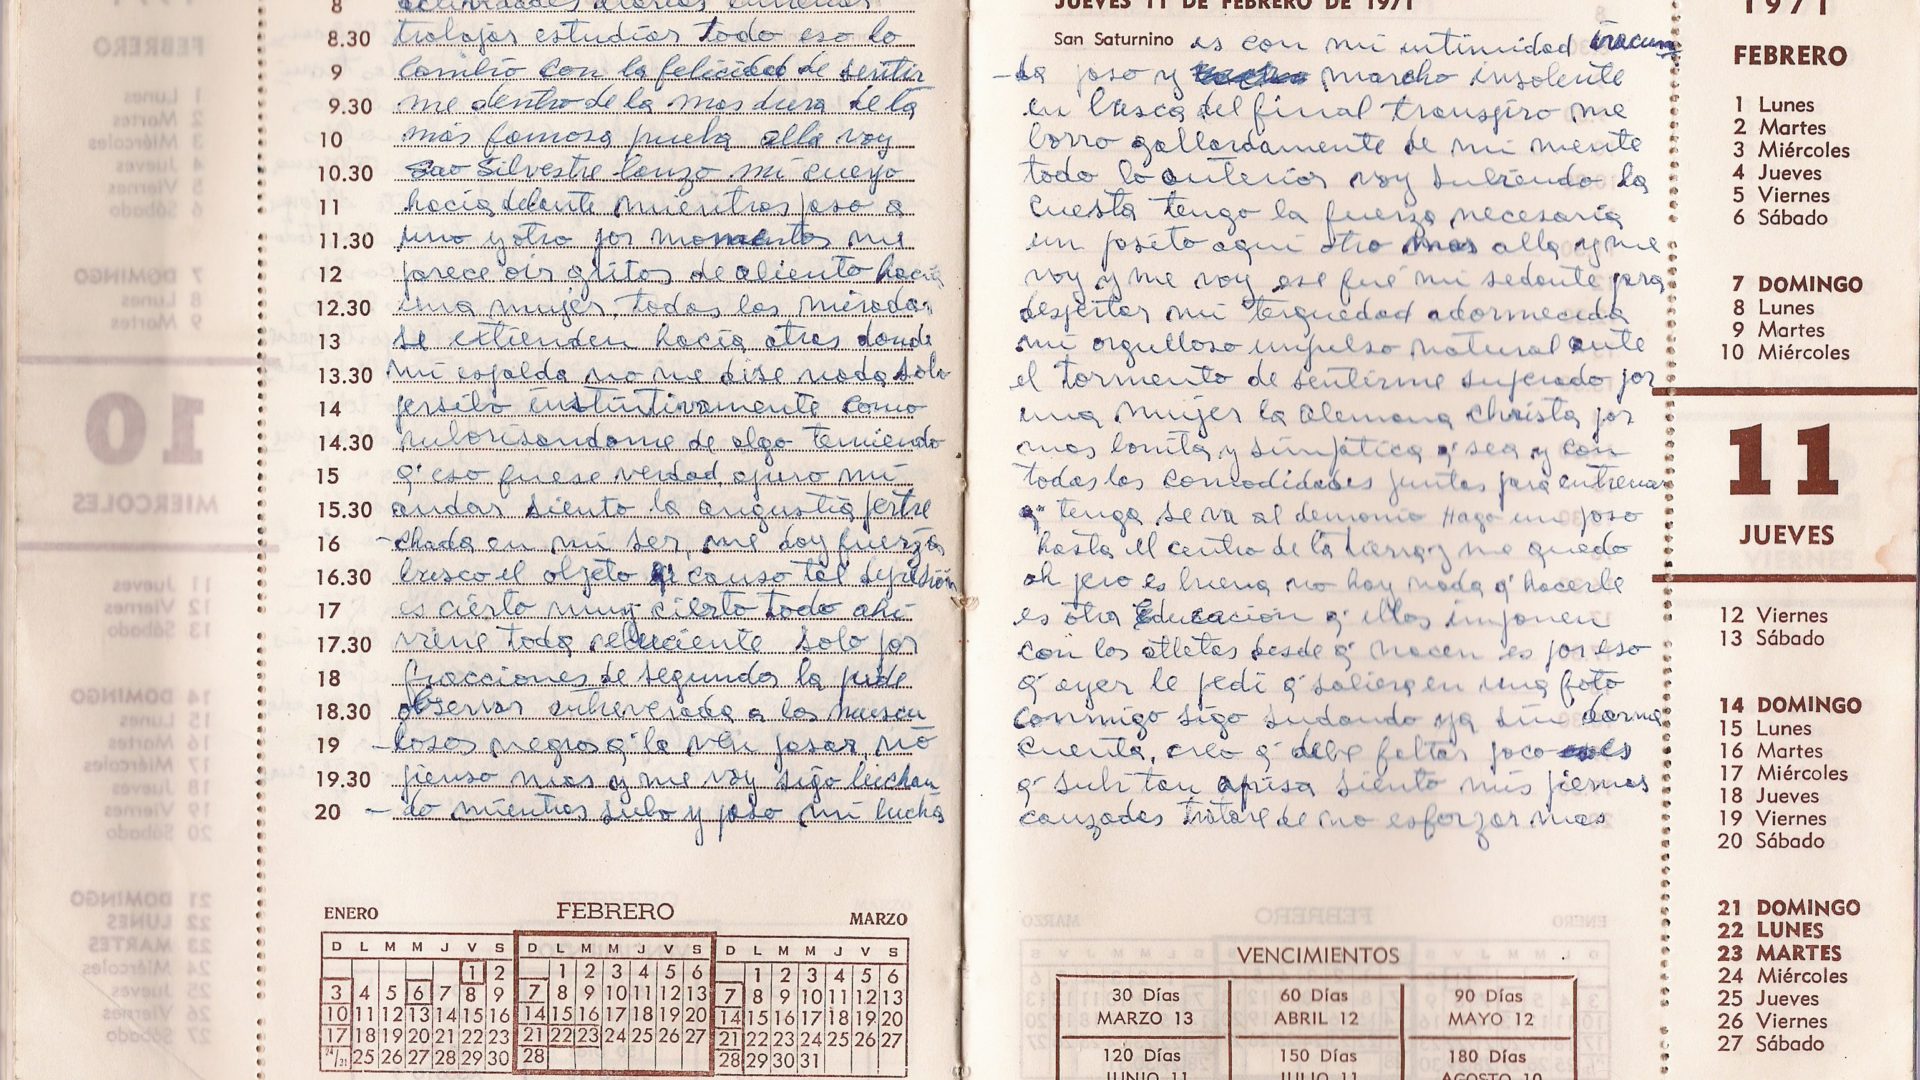 8 actividades diarias entrenar
8.30 trabajar estudiar todo eso lo
9 cambio con la felicidad de sentir
9.30 me dentro de la mas dura de la
10 más famosa prueba alla voy
10.30 Sao Silvestre lanzo mi cuerpo
11 hacia delante mientras paso a
11.30 uno y otro por momentos me
12 parece oir gritos de aliento hacia
12.30 una mujer, todas las miradas
13 se extienden hacia atras donde
13.30 mi espalda no me dise nada solo
14 persibo instintivamente como
14.30 ruborisandome de algo temiendo
15 q' eso fuese verdad, apuro mi
15.30 andar siento la angustia pertre
16 -chada en mi ser, me doy fuerzas
16.30 busco el objeto q' causo tal depresión
17 es cierto muy cierto todo ahi
17.30 viene toda reluciente solo por
18 fracciones de segundo la pude
18.30 observar entreverada a los muscu
19 -losos negros q' la ven pasar, no
19.30 pienso mas y me voy sigo luchan
20 -do mientras subo y paso mi lucha
ENERO FEBRERO MARZO
D L M M J V S D L M M J V S D L M M J V S
1 2 1 2 3 4 5 6 1 2 3 4 5 6
3 4 5 6 7 8 9 7 8 9 10 11 12 13 7 8 9 10 11 12 13
10 11 12 13 14 15 16 14 15 16 17 18 19 20 14 15 16 17 18 19 20
17 18 19 20 21 22 23 21 22 23 24 25 26 27 21 22 23 24 25 26 27
24/31 25 26 27 28 29 30 28 28 29 30 31
JUEVES 11 DE FEBRERO DE 1971
San Saturnino es con mi intimidad iracun
-da paso y marcho insolente
en busca del final transpiro me
borro gallardamente de mi mente
todo lo anterior voy subiendo la
cuesta tengo la fuerza necesaria
un pasito aqui otro mas alla y me
voy y me voy ese fué mi sedante para
despertar mi terquedad adormecida
mi orgulloso impulso natural ante
el tormento de sentirme superado por
una mujer la Alemana Christa por
mas bonita y simpática q' sea y con
todas las comodidades juntas para entrenar
q' tenga se va al demonio Hago un poso
hasta el centro de la tierra y me quedo
ah pero es buena no hay nada q' hacerle
es otra Educación q' ellos imponen
con los atletas desde q' nacen es por eso
q' ayer le pedi q' saliera en una foto
conmigo sigo sudando ya sin darme
cuenta, creo q' debe faltar poco
q' subi tan aprisa siento mis piernas
canzadas tratare de no esforzar mas
VENCIMIENTOS
30 Días 60 Días 90 Días
MARZO 13 ABRIL 12 MAYO 12
120 Días 150 Días 180 Días
JUNIO 11 JULIO 11 AGOSTO 10
1971
FEBRERO
1 Lunes
2 Martes
3 Miércoles
4 Jueves
5 Viernes
6 Sábado
7 DOMINGO
8 Lunes
9 Martes
10 Miércoles
11
JUEVES
12 Viernes
13 Sábado
14 DOMINGO
15 Lunes
16 Martes
17 Miércoles
18 Jueves
19 Viernes
20 Sábado
21 DOMINGO
22 LUNES
23 MARTES
24 Miércoles
25 Jueves
26 Viernes
27 Sábado